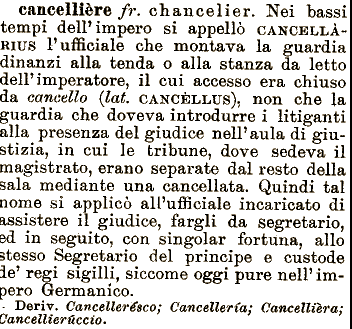 cancellière fr. chancelier. Nei bassi
tempi dell'impero si appellò CANCELLÀ-
RIUS l'ufficiale che montava la guardia
dinanzi alla tenda o alla stanza da letto
dell'imperatore, il cui accesso era chiuso
da cancello (lat. CANCÈLLUS), non che la
guardia che doveva introdurre i litiganti
alla presenza del giudice nell'aula di giu-
stizia, in cui le tribune, dove sedeva il
magistrato, erano separate dal resto della
sala mediante una cancellata. Quindi tal
nome si applicò all'ufficiale incaricato di
assistere il giudice, fargli da segretario,
ed in seguito, con singolar fortuna, allo
stesso Segretario del principe e custode
de' regi sigilli, siccome oggi pure nell'im-
pero Germanico.
Deriv. Cancellerésco; Cancellería; Cancellièra;
Cancellierúccio.